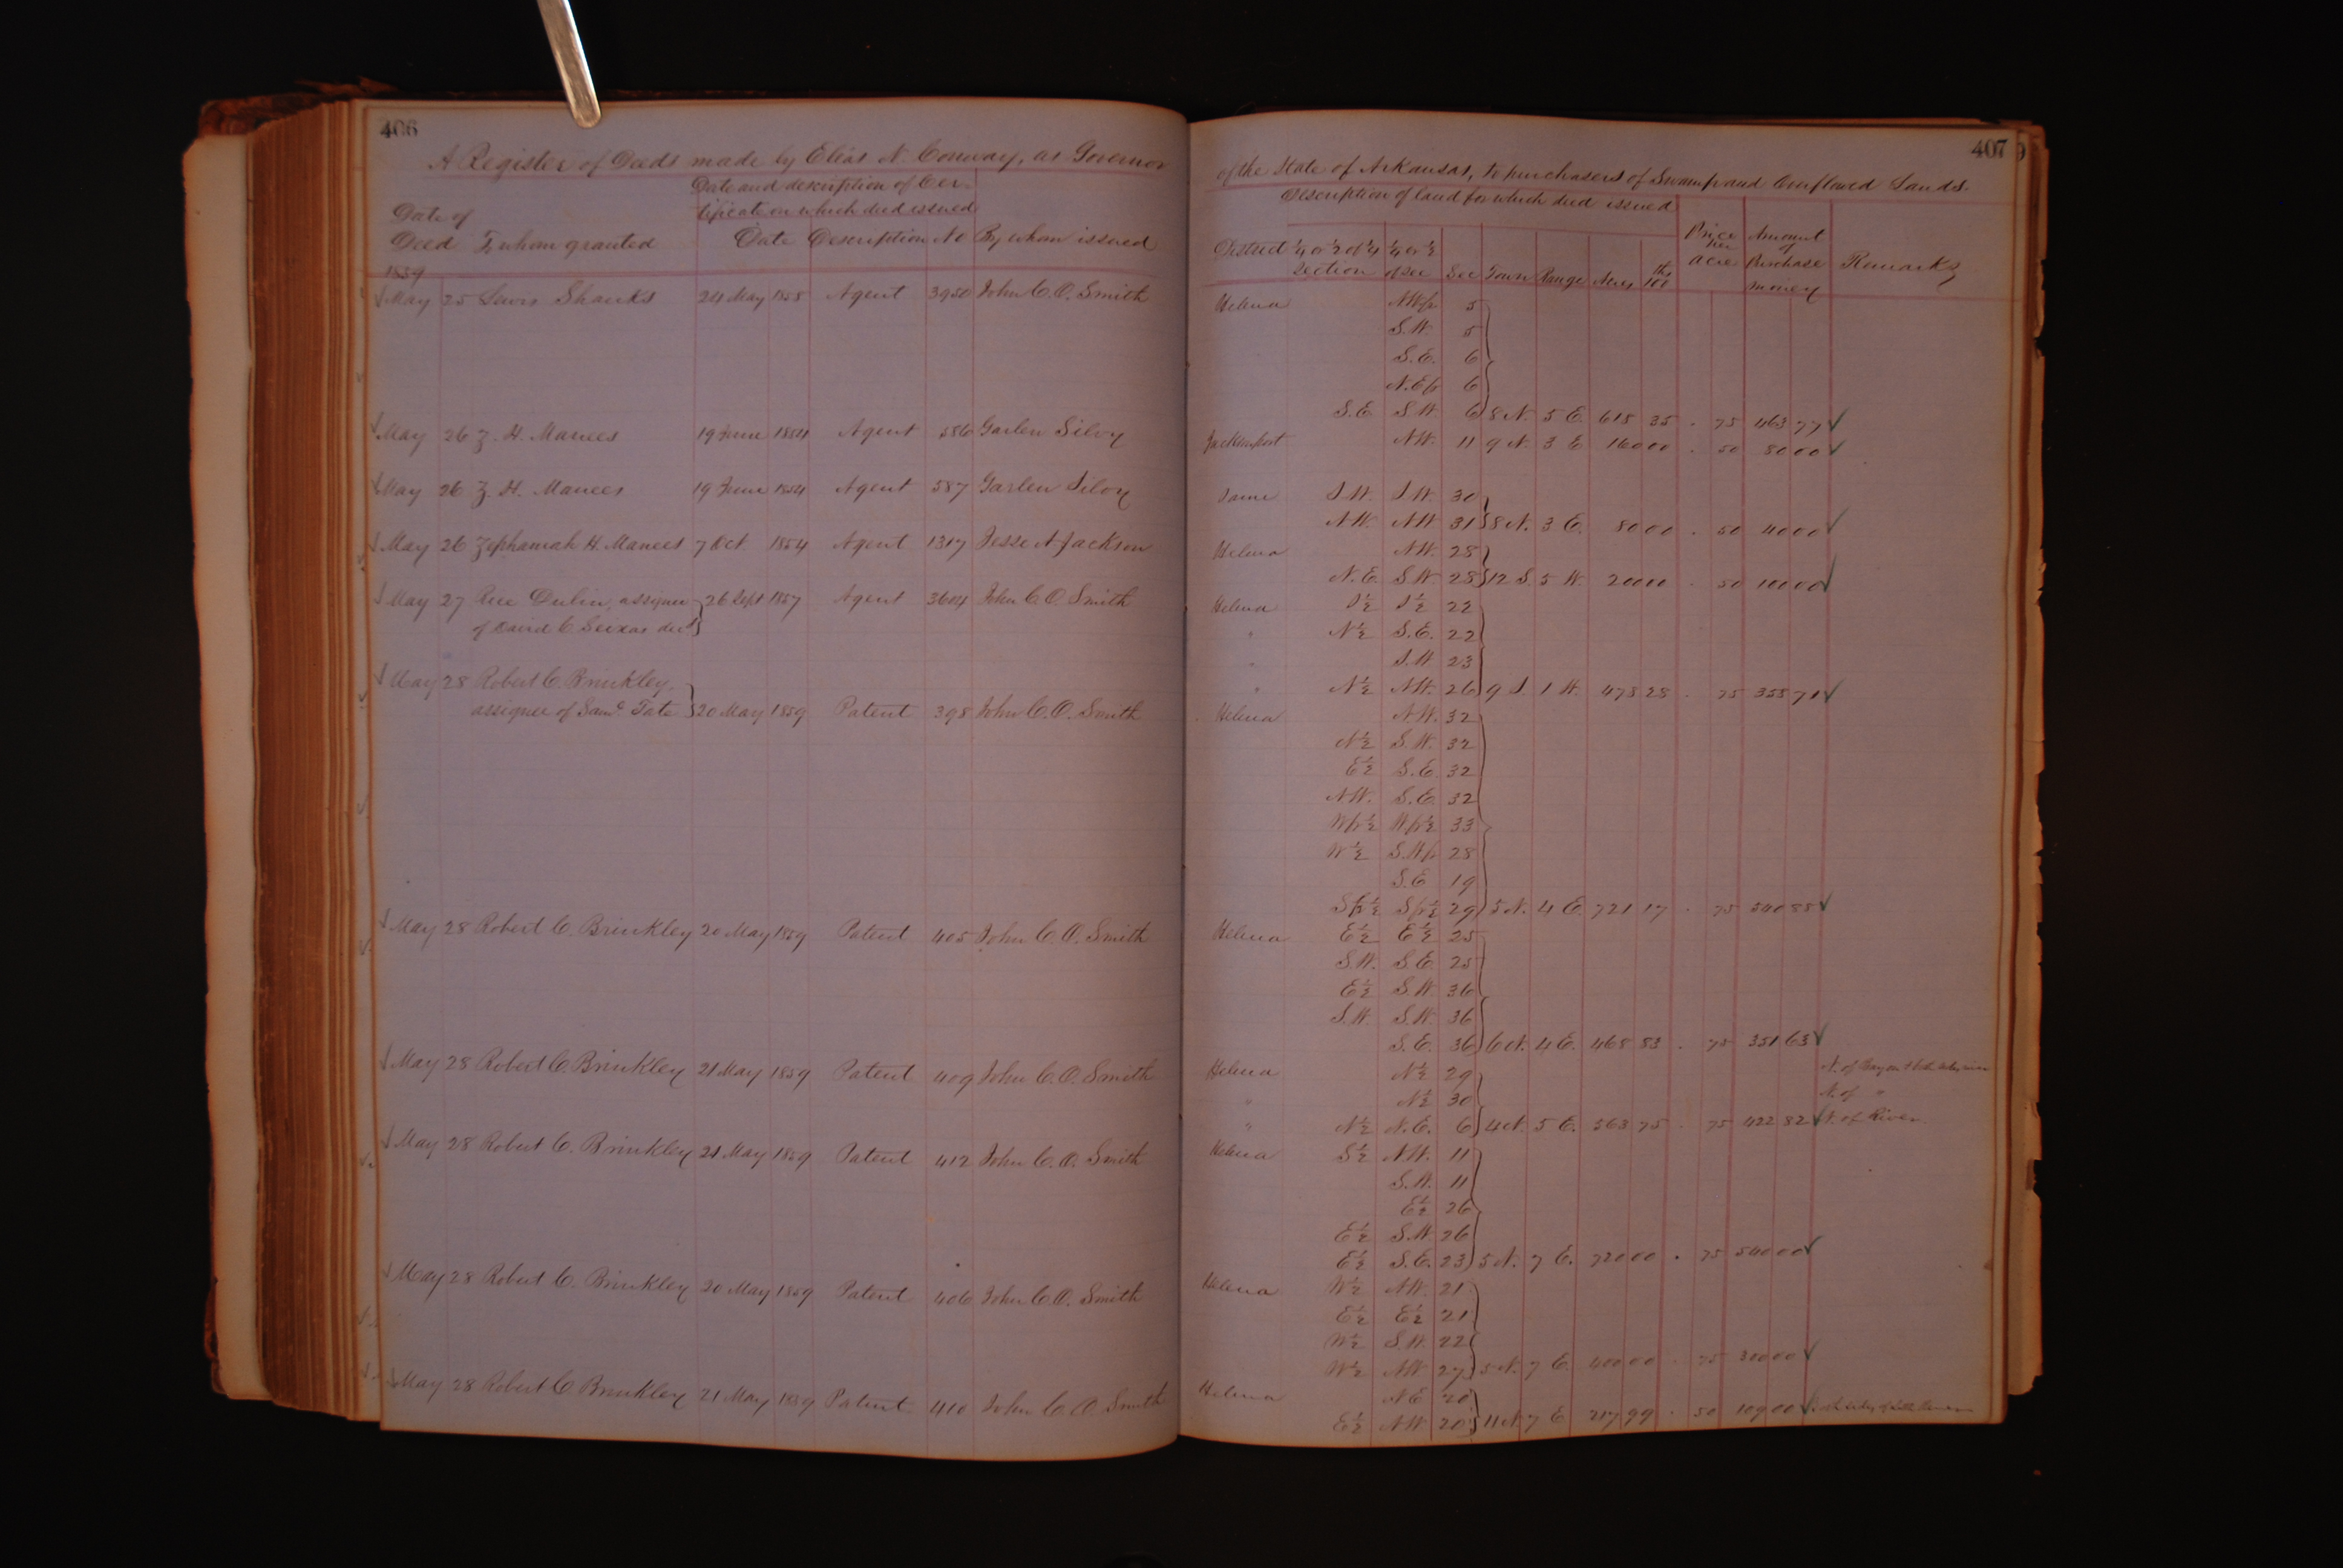 406
A Register of Deeds made by Elias N. Conway, as Governor
Date and description of Cer-
tificate on which deed issued
Date of
Deed To whom granted Date Description No By whom issued
1859
May 25 Lewis Shanks 24 May 1858 Agent 3950 John C. O. Smith
May 26 Z. H. Manees 19 June 1854 Agent 586 Garlen Silvy
May 26 Z. H. Manees 19 June 1854 Agent 587 Garlen Silvy
May 26 Zephaniah H. Manees 7 Oct. 1854 Agent 1317 Jesse A Jackson
May 27 Rice Dulin, assignee 26 Sept 1857 Agent 3604 John C. O. Smith
of David C. Seixas decd
May 28 Robert C. Brinkley,
assignee of Saml. Tate 20 May 1859 Patent 398 John C. O. Smith
May 28 Robert C. Brinkley 20 May 1859 Patent 405 John C. O. Smith
May 28 Robert C. Brinkley 21 May 1859 Patent 409 John C. O. Smith
May 28 Robert C. Brinkley 21 May 1859 Patent 412 John C. O. Smith
May 28 Robert C. Brinkley 20 May 1859 Patent 406 John C. O. Smith
May 28 Robert C. Brinkley 21 May 1859 Patent 410 John C. O. Smith
407
of the State of Arkansas, to purchasers of Swamp and Overflowed Lands.
Description of land for which deed issued
District ¼ or ½ of ¼ Section ¼ or ½ of Sec Sec Town Range Acres 100ths Price per acre Amount of Purchase money Remarks
Helena N.W.fr 5
S.W. 5
S.E. 6
N.E.fr 6
S.E. S.W. 6 8 N. 5 E. 618 35 . 75 463 77
Jacksonport N.W. 11 9 N. 3 E. 160 00 . 50 80 00
Same S.W. S.W. 30
N.W. N.W. 31 8 N. 3 E. 80 00 . 50 40 00
Helena N.W. 28
N.E. S.W. 28 12 S. 5 W. 200 00 . 50 100 00
Helena S½ S½ 22
" N½ S.E. 22
" S.W. 23
" N½ N.W. 26 9 S. 1 W. 475 28 . 75 355 71
Helena N.W. 32
N½ S.W. 32
E½ S.E. 32
N.W. S.E. 32
Wfr½ Wfr½ 33
W½ S.W.fr 28
S.E 19
Sfr½ Sfr½ 29 5 N. 4 E. 721 17 . 75 540 85
Helena E½ E½ 25
S.W. S.E. 25
E½ S.W. 36
S.W. S.W. 36
S.E. 36 6 N. 4 E. 468 83 . 75 351 63
Helena N½ 29 N. of Bayou
" N½ 30 N. of "
" N½ N.E. 6 4 N. 5 E. 563 75 . 75 422 82 N. of River
Helena S½ N.W. 11
S.W. 11
E½ 26
E½ S.W. 26
E½ S.E. 23 5 N. 7 E. 720 00 . 75 540 00
Helena W½ N.W. 21
E½ E½ 21
W½ S.W. 22
W½ N.W. 27 5 N. 7 E. 400 00 . 75 300 00
Helena N.E 20
E½ N.W. 20 11 N 7 E 217 99 . 50 109 00